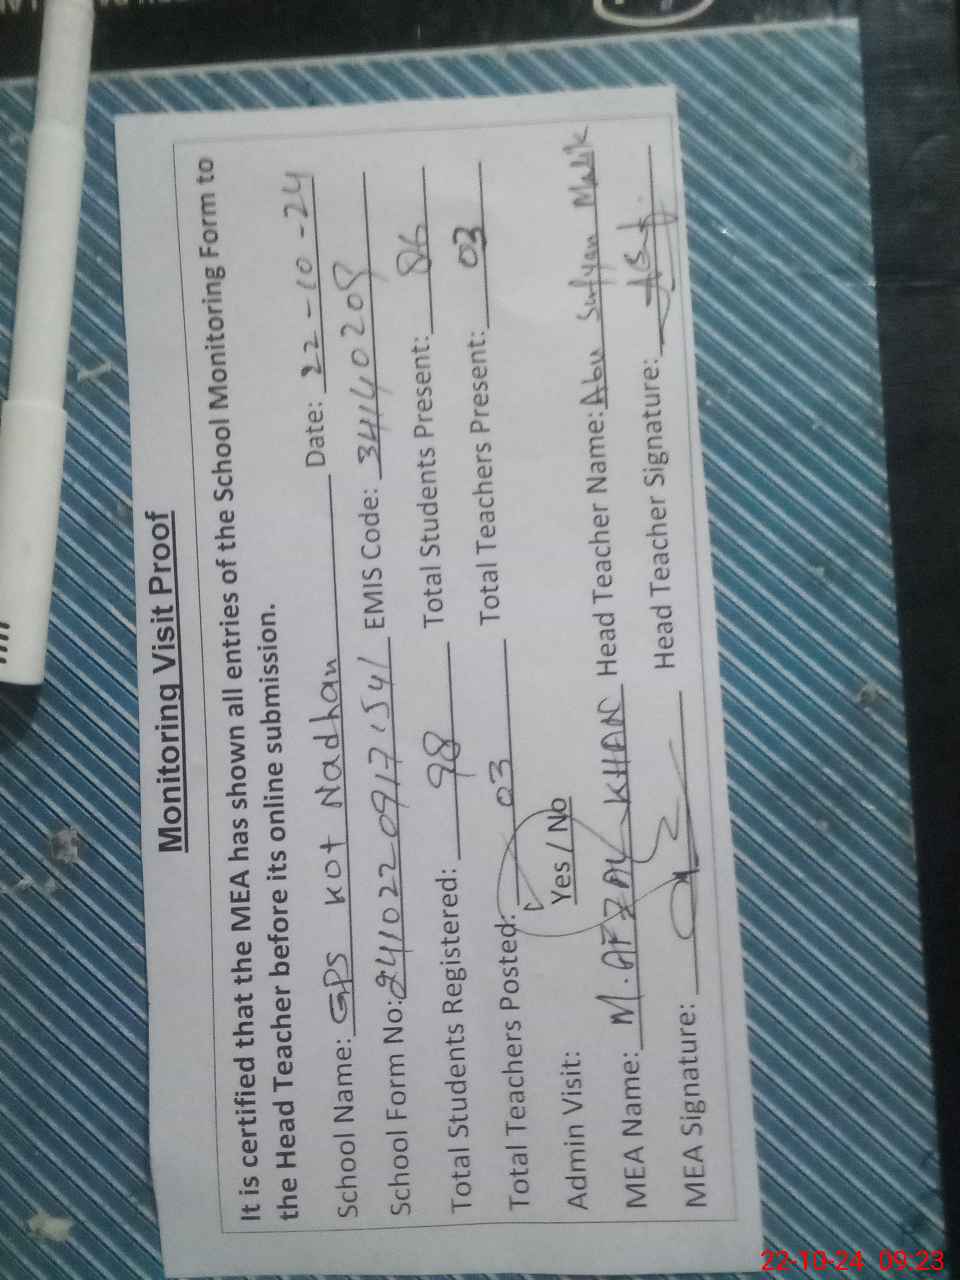 Monitoring Visit Proof
It is certified that the MEA has shown all entries of the School Monitoring Form to
the Head Teacher before its online submission.
School Name: GPS Kot Nadhan Date: 22-10-24
School Form No: 2410220917154/ EMIS Code: 34140209
Total Students Registered: 98 Total Students Present: 86
Total Teachers Posted: 03 Total Teachers Present: 03
Admin Visit: Yes / No
MEA Name: M. AFZAL KHAN Head Teacher Name: Abu Sufyan Malik
MEA Signature: Head Teacher Signature:
22-10-24 09:23